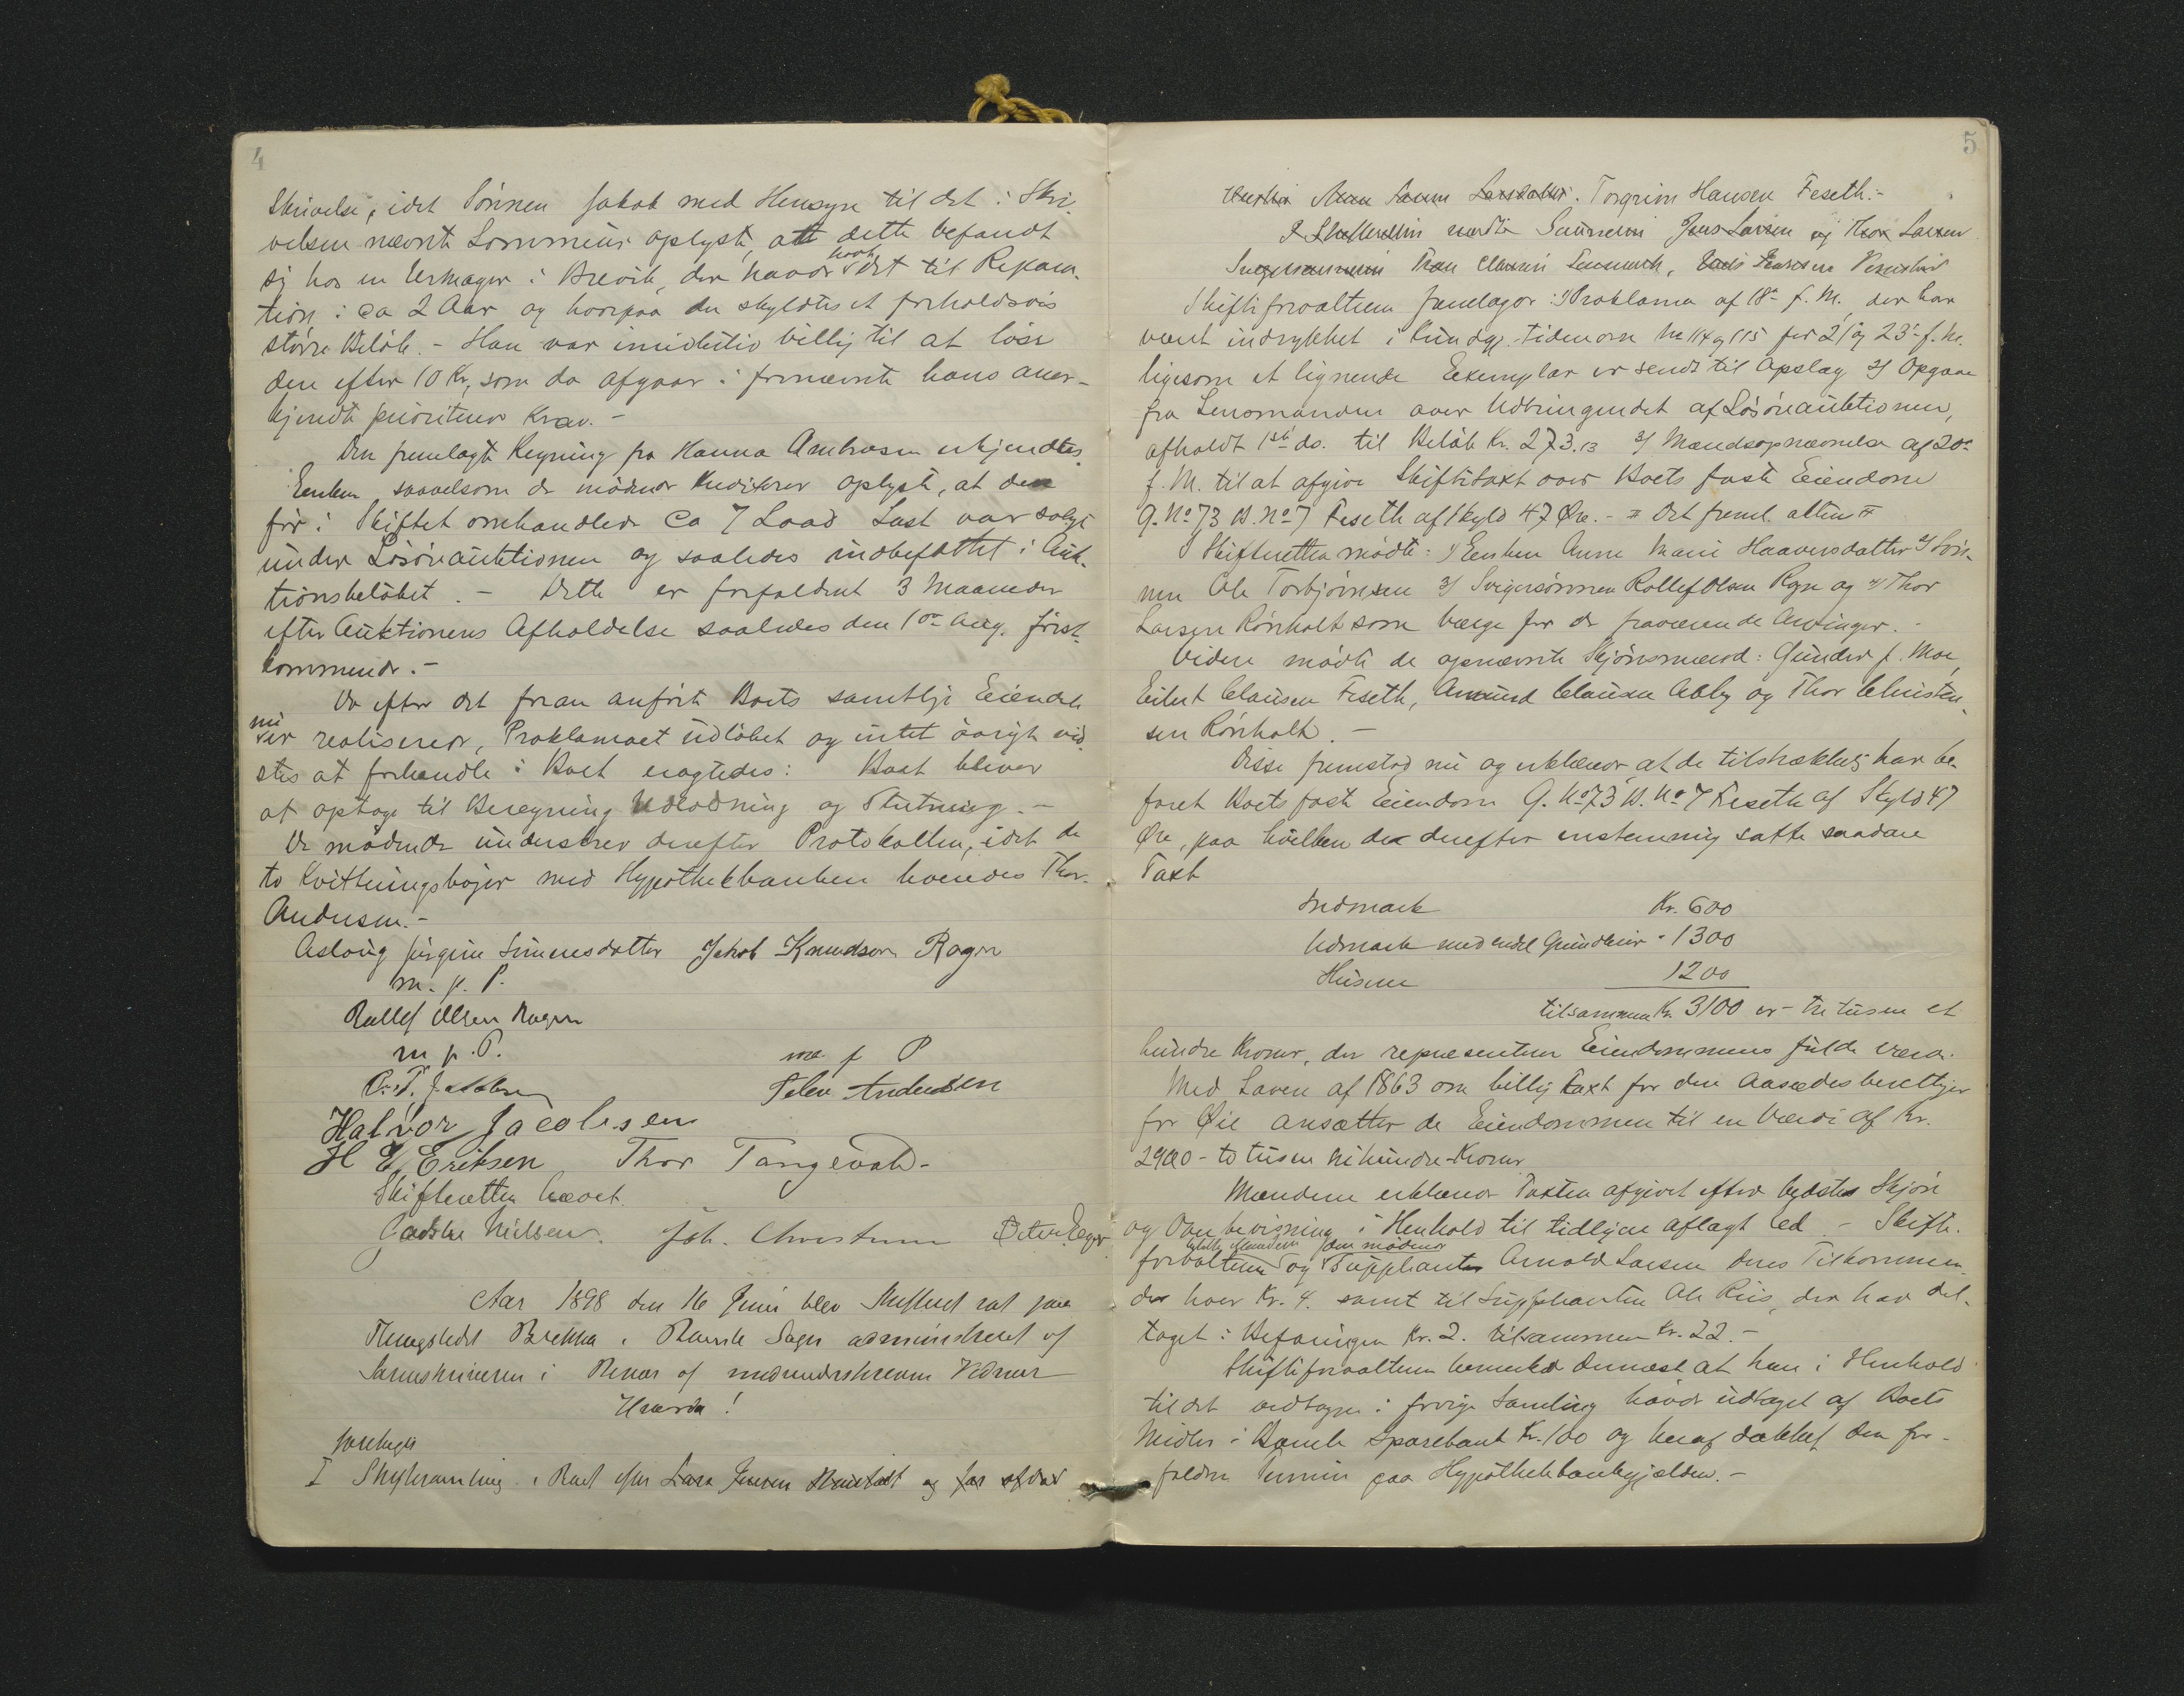 4
Skrivelse, idet Sønnen Jakob med Hensyn til det i Skri-
velsen nævnte Lommeur oplyste, att dette befandt
sig hos en Urmager i Brevik, der havde havt det til Repara-
tion i ca 2 Aar og hvorpaa der skyldtes et forholdsvis
større Beløb. - Han var imidlertid villig til at løse
den efter 10 Kr, som da afgaar i fornævnte hans aner-
kjendte prioriterede Krav. -
Den fremlagte Regning fra Hanna Ambrosen erkjendtes.
Enken saavelsom de mødende Kreditorer oplyste, at den
før i Skiftet omhandlede Ca 7 Laad Last var solgt
under Løsøreauktionen og saaledes indbefattet i Auk-
tionsbeløbet. - Dette er forfaldent 3 Maaneder
efter Auktionens Afholdelse saaledes den 1ste Aug. først-
kommende. -
Da efter det foran anførte Boets samtlige Eiendele
nu er realiserede, Proklamaet udløbet og intet øvrigt vid-
stes at forhandle i Boet eragtedes: Boet bliver
at optage til Beregning Udlodning og Slutning. -
De mødende underskrev derefter Protokollen, idet de
to Kvitteringsbøger med Hypothekbanken leveredes Thor
Andersen. -
Aslaug Jørgine Simensdatter Jakob Knudsen Rogn
m. p. P.
Rollef Olsen Rogn
m. p. P. m. p P
Chr. P. Jacobsen Peter Andersen
Halvor Jacobsen
H E Eriksen Thor Tangevald.
Skifteretten hævet.
Nielsen. Joh. Christensen Peter
Aar 1898 den 16 Juni blev Skifteret sat paa
Thingstedet Brekka i Bamle Sogn administreret af
Sorenskriveren i Nærvær af medunderskrevne Vidner
Hvorda!
foretoges
I Skiftesamling i Boet efter Lars Jensen og før afdøde
5
Hustru Anne Larsdatter. Torgrim Hansen Feseth. -
I Skifteretten mødte Sønnerne Jens Larsen og Thor Larsen
Svigersønnerne
Skifteforvalteren fremlagde: 1/ Proklama af 18de f. M. der har
været indrykket i Kundgj.-tidenden No 114 og 115 for 21 og 23de f. M.
ligesom et lignende Exemplar er sendt til Opslag 2/ Opgave
fra Lensmanden over Udbringendet af Løsøreauktionen,
afholdt 1ste ds. til Beløb Kr. 273.13 3/ Mandsopnævnelse af 20de
f. M. til at afgive Skiftetaxt over Boets faste Eiendom
G. No 73 B. No 7 Feseth af Skyld 47 Øre. - Det freml. alter
I Skifteretten mødte: 1/ Enken Anne Marie Haavorsdatter 2/ Søn-
nen Ole Torbjørnsen 3/ Svigersønnen Rollef Olsen Rogn og 4/ Thor
Larsen Rønholt som Værge for de fraværende Arvinger. -
Videre mødte de opnævnte Skjønsmænd: Gunder J. Moe,
Eilert Clausen Feseth, Amund Clausen Abby og Thor Christen-
sen Rønholt. -
Disse fremstod nu og erklærede, at de tilstrækkelig har be-
faret Boets faste Eiendom G. No 73 B. No 7 Feseth af Skyld 47
Øre, paa hvilken de derefter enstemmig satte saadan
Taxt
Indmark Kr. 600
Udmark med endel Grundleier " 1300
Husene 1200
tilsammen Kr. 3100 er - tre tusen et
hundre Kroner, der repræsenterer Eiendommens fulde Værdi.
Med Loven af 1863 om billig Taxt for den Aasædesberettigede
for Øie ansætter de Eiendommen til en Værdi af Kr.
2900 - to tusen nihundre Kroner
Mændene erklærede Taxten afgivet efter bedste Skjøn
og Overbevisning i Henhold til tidligere aflagt Ed - Skifte-
Mændene den mødende
forvalteren og Supplianten Arnold Larsen deres Tilkommen-
de hver Kr. 4. samt til Supplianten Ole Riis, der har del-
taget i Befaringen Kr. 2. tilsammen Kr. 22. -
Skifteforvalteren bemærkede dernæst at han i Henhold
til det vedtagne i forrige Samling havde udtaget af Boets
Midler i Bamle Sparebank Kr. 100 og heraf dækket den for-
faldne Termin paa Hypothekbankgjælden. -